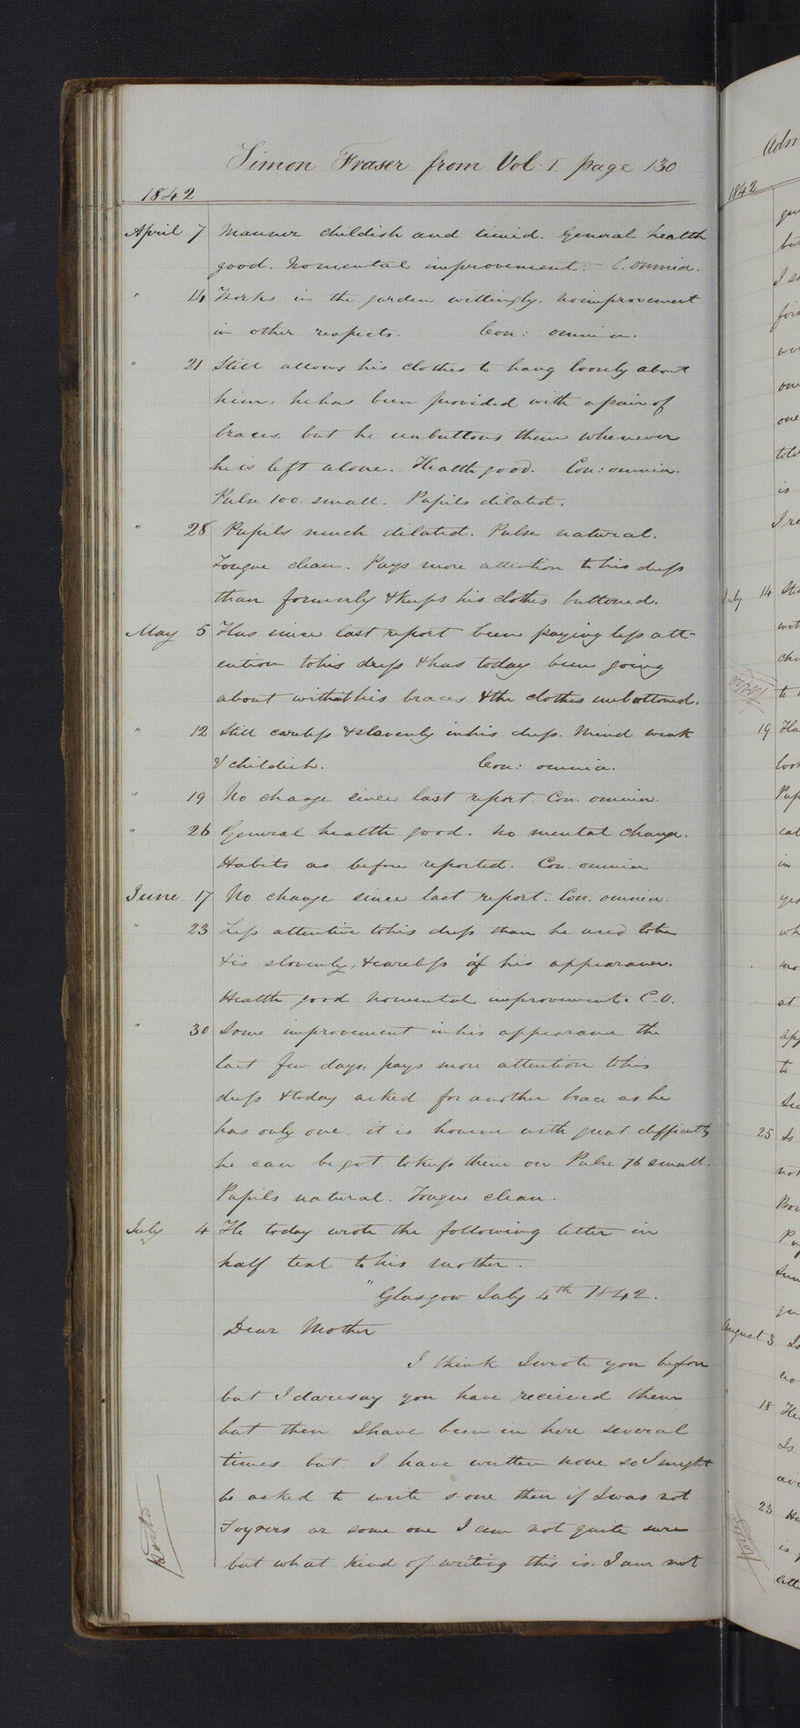 Simon Fraser from Vol. I. page 130
1842
April 7 Manner childish and timid. General health
good. No mental improvement. C. omnia.
" 14 Works in the garden willingly. No improvement
in other respects. Con: omnia.
" 21 Still allows his clothes to hang loosely about
him, he has been provided with a pair of
braces, but he unbuttons them whenever
he is left alone. Health good. Con: omnia.
Pulse 100. small. Pupils dilated.
" 28 Pupils much dilated. Pulse natural.
Tongue clean. Pays more attention to his dress
than formerly & keeps his clothes buttoned.
May 5 Has since last report been paying less att-
ention to his dress & has today been going
about without his braces & the clothes unbuttoned.
" 12 Still careless & slovenly in his dress. Mind weak
& childish. Con: omnia.
" 19 No change since last report. Con. omnia.
" 26 General health good. No mental change.
Habits as before reported. Con. omnia
June 17 No change since last report. Con. omnia.
" 23 Less attentive to his dress than he used to be
& is slovenly, & careless of his appearance.
Health good No mental improvement. C.O.
" 30 Some improvement in his appearance the
last few days, pays more attention to his
dress & today asked for another brace as he
has only one. it is however with great difficulty
he can be got to keep them on. Pulse 76 small.
Pupils natural. Tongue clean.
July 4 He today wrote the following letter in
half text to his mother.
" Glasgow July 4th 1842.
Dear Mother
I think I wrote you before
but I daresay you have received them
but then I have been in here several
times but I have written none so I might
be asked to write some then if I was not
or some one I am not quite sure
but what kind of writing this is. I am not
1842
July 14
19
25
August 3
18
23